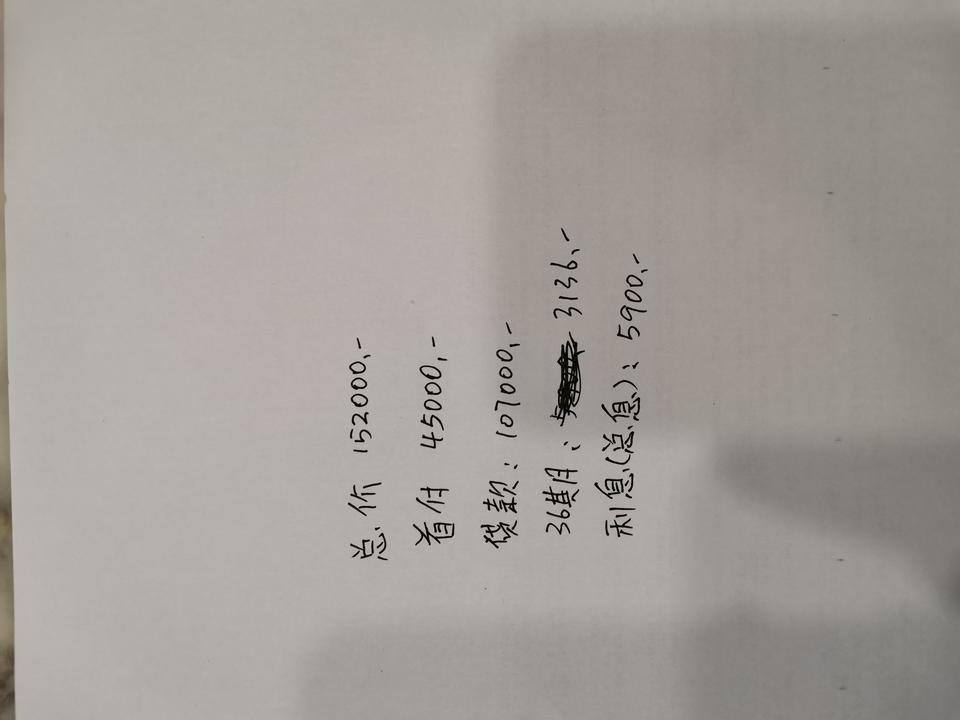 总价 152000,-
首付 45000,-
贷款: 107000,-
36期: 3136,-
利息(总息): 5900,-